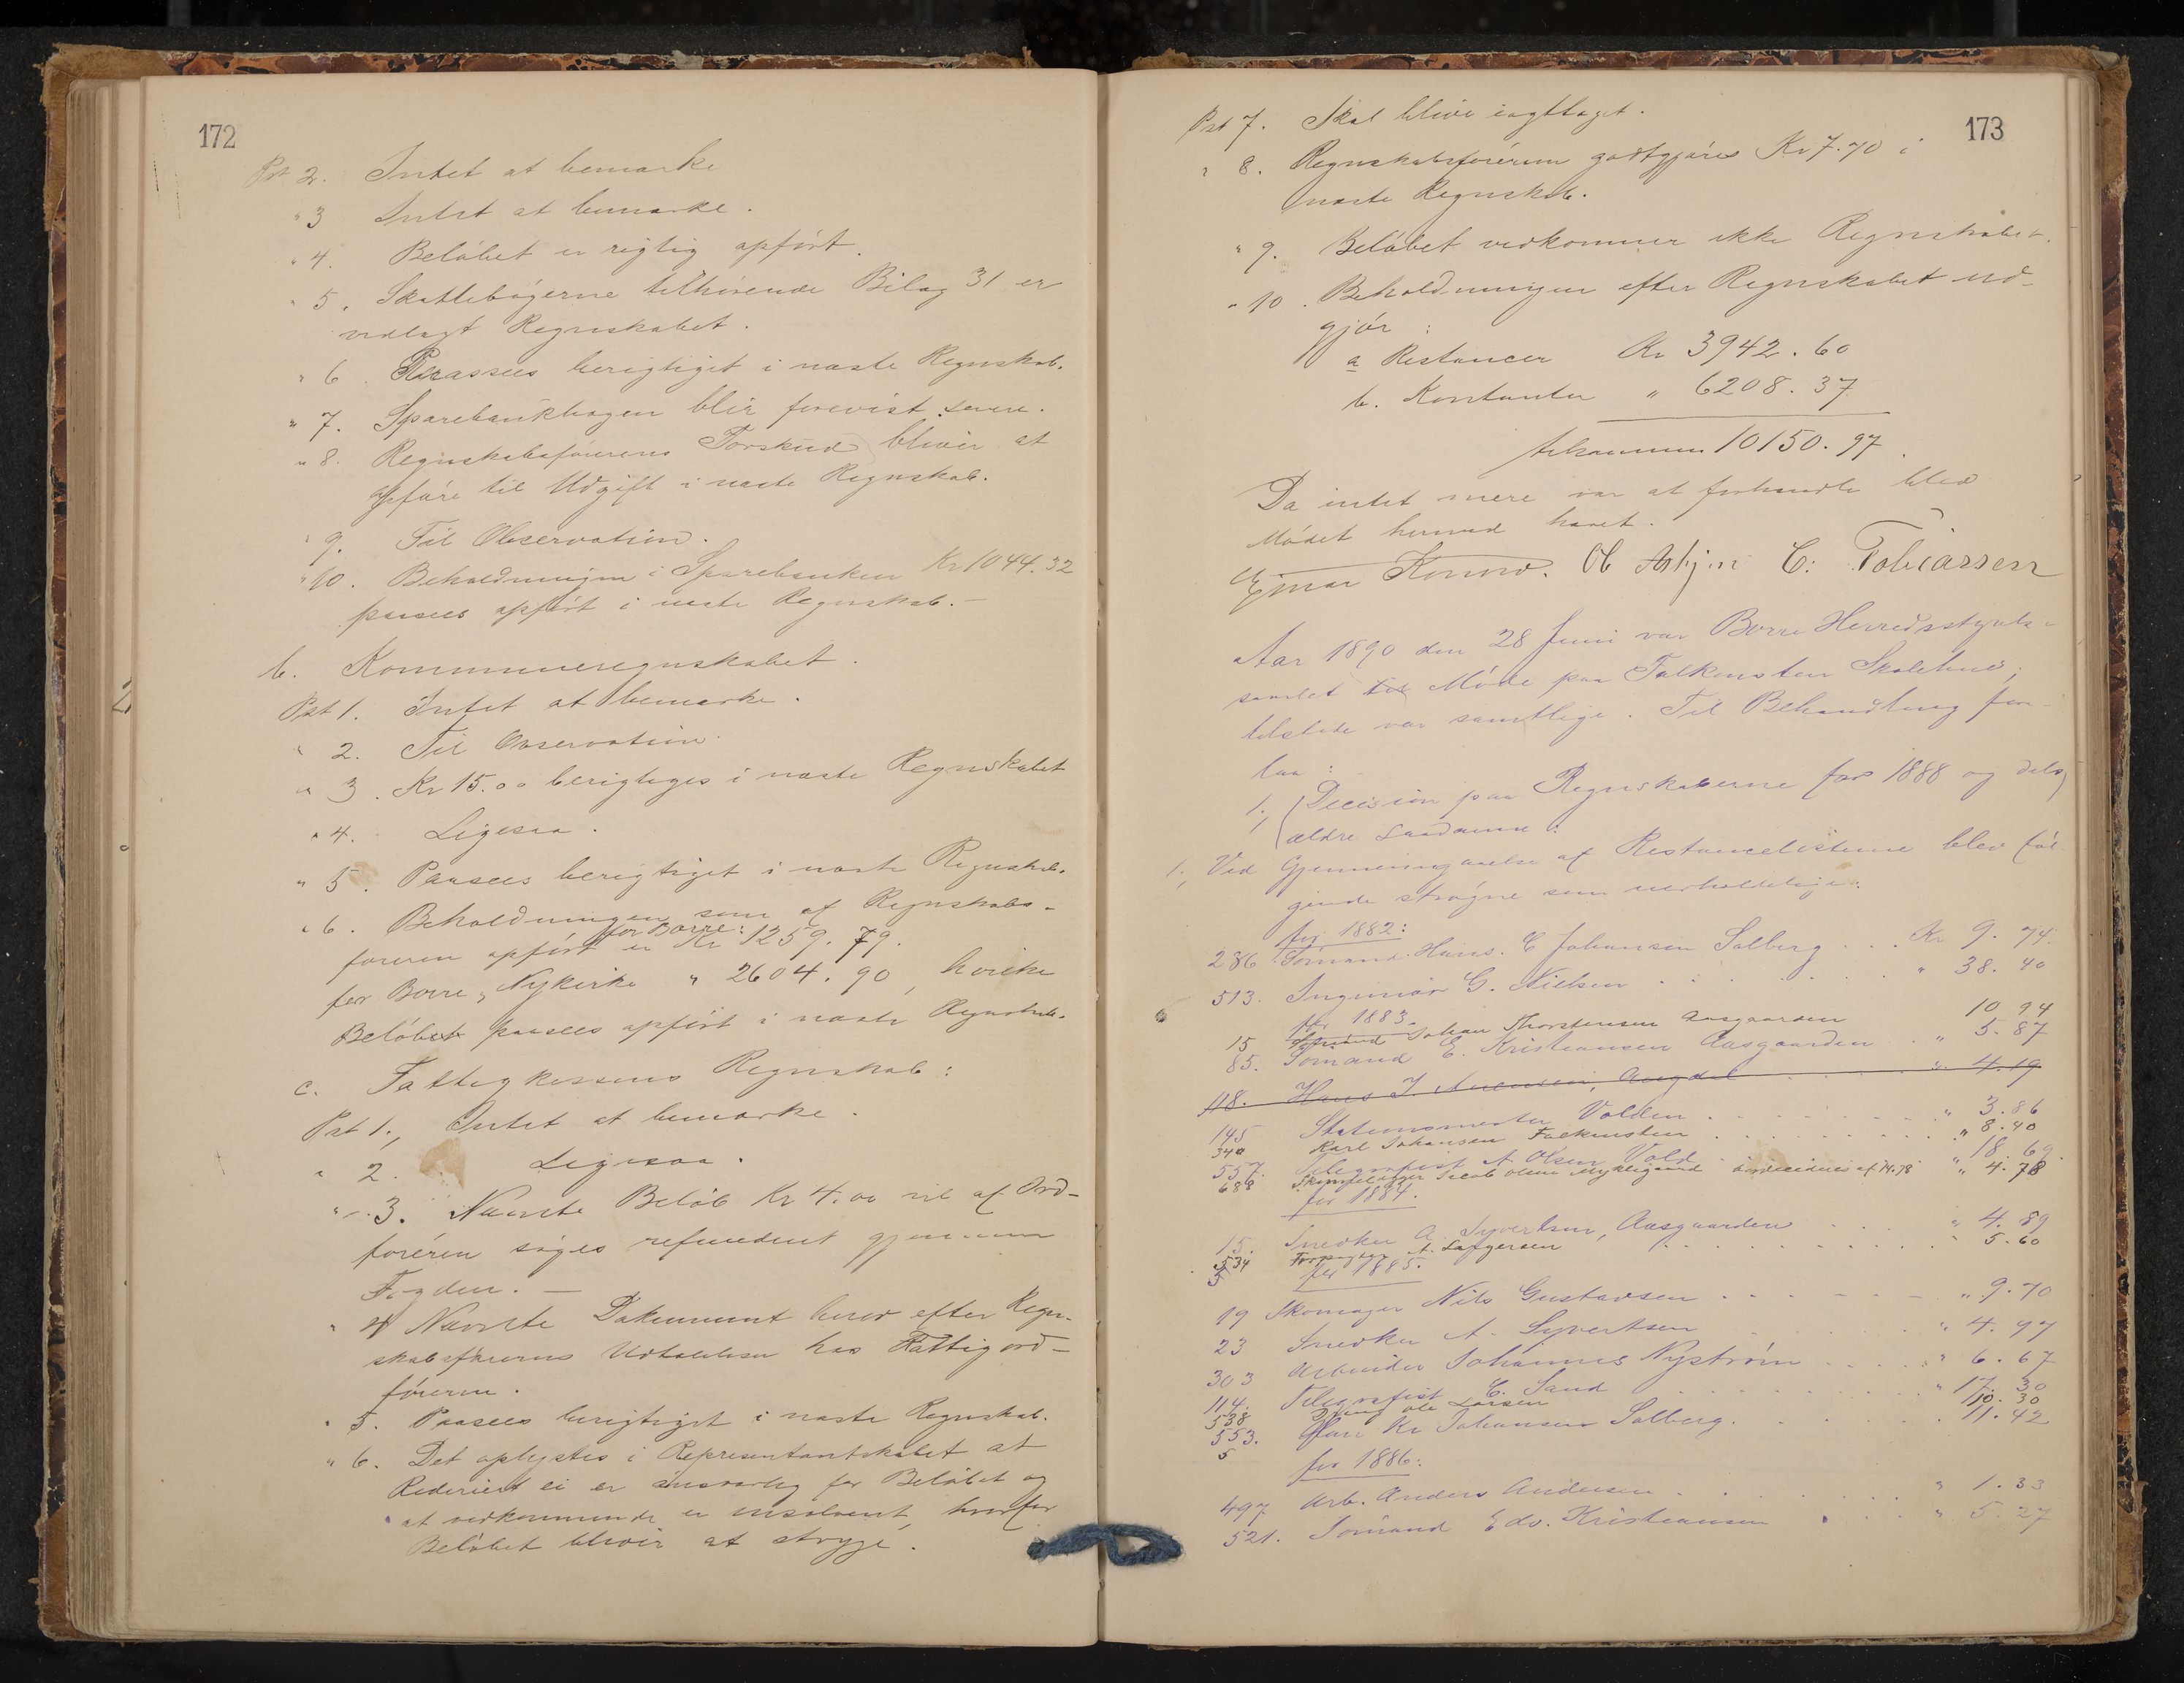 172
Pst 2. Intet at bemærke
" 3 Intet at bemærke.
" 4. Beløbet er rigtig opført.
" 5. Skattebøgerne tilhørende Bilag 31 er
vedlagt Regnskabet.
" 6. Paasees berigtiget i næste Regnskab.
" 7. Sparebankbogen blir forevist senere.
" 8. Regnskabsførerens Forskud bliver at
opføre til Udgift i næste Regnskab.
" 9. Til Observation.
" 10. Beholdningen i Sparebanken Kr 1044.32
paasees opført i næste Regnskab.-
b. Kommuneregnskabet.
Pst 1. Intet at bemærke.
" 2. Til Observation.
" 3. Kr 15.00 berigtiges i næste Regnskabet
" 4. Ligesaa.
" 5. Paasees berigtiget i næste Regnskab.
" 6. Beholdningen som af Regnskabs-
føreren opført er for Borre: Kr 1259.79.
for Borre, Nykirke " 2604.90, hvilke
Beløbet paasees opført i næste Regnskab.
c. Fattigkassens Regnskab:
Pst 1., Intet at bemærke.
" 2. Ligesaa.
" 3. Nævnte Beløb Kr 4.00 vil af Ord-
føreren søges refunderet gjennem
Fogden. -
" 4 Nævnte Dokument beror efter Regn-
skabsførerens Udtalelser hos Fattigord-
føreren.
" 5. Paasees berigtiget i næste Regnskab.
" 6. Det oplystes i Representantskabet at
Rederiet ei er ansvarlig for Beløbet og
at vedkommende er insolvent, hvorfor
Beløbet bliver at stryge.
173
Pst 7. Skal blive iagttaget.
" 8. Regnskabsføreren godtgjøres Kr 7.70 i
næste Regnskab.
" 9. Beløbet vedkommer ikke Regnskabet.
" 10. Beholdningen efter Regnskabet ud-
gjør:
a Restancer Kr 3942.60
b. Kontanter " 6208.37
tilsammen 10150.97.
Da intet mere var at forhandle blev
Mødet hermed hævet.
Ejnar Konow. C: Tobiassen
Aar 1890 den 28 Juni var Borre Herredsstyrelse
samlet til Møde paa Falkensten Skolehus;
tilstede var samtlige. Til Behandling fore-
laa:
1., Decision paa Regnskaberne for 1888 og dels
ældre saadanne:
1., Ved Gjennemgaaelse af Restancelisterne blev føl-
gende strøgne som uerholdelige:
for 1882:
286 Sømand Hans. C Johansen Solberg . . . Kr 9.74.
513. Ingeniør G. Nielsen . . . " 38.40
for 1883.
15 Sømand Johan Thorstensen Aasgaarden 10 94
85. Sømand E. Kristiansen Aasgaarden . " 5.87
118. Hans J. " 4.19
145 Stationsmester Volden . . . " 3.86
340 Karl Johansen Falkensten . . . " 8.40
557. Telegrafist A Olsen Vold " 18.69.
688 Jacob Olsen " 4.78
for 1884.
15. Snedker A. Syvertsen, Aasgaarden . . . " 4.89
534 A. " 5.60
5 for 1885.
19 Skomager Nils Gustavsen . . . " 9.70
23 Snedker A. Syvertsen . . . " 4.97
303 Arbeider Johannes Nystrøm . . . " 6.67
114. Telegrafist C. Sand . . . " 17.30
538 Ole Larsen 10.30
553. Kr Johansen Solberg . . . 11.42
5
for 1886:
497 Arb. Anders Andersen . . . " 1.33
521. Sømand Edv. Kristiansen . . . " 5.27